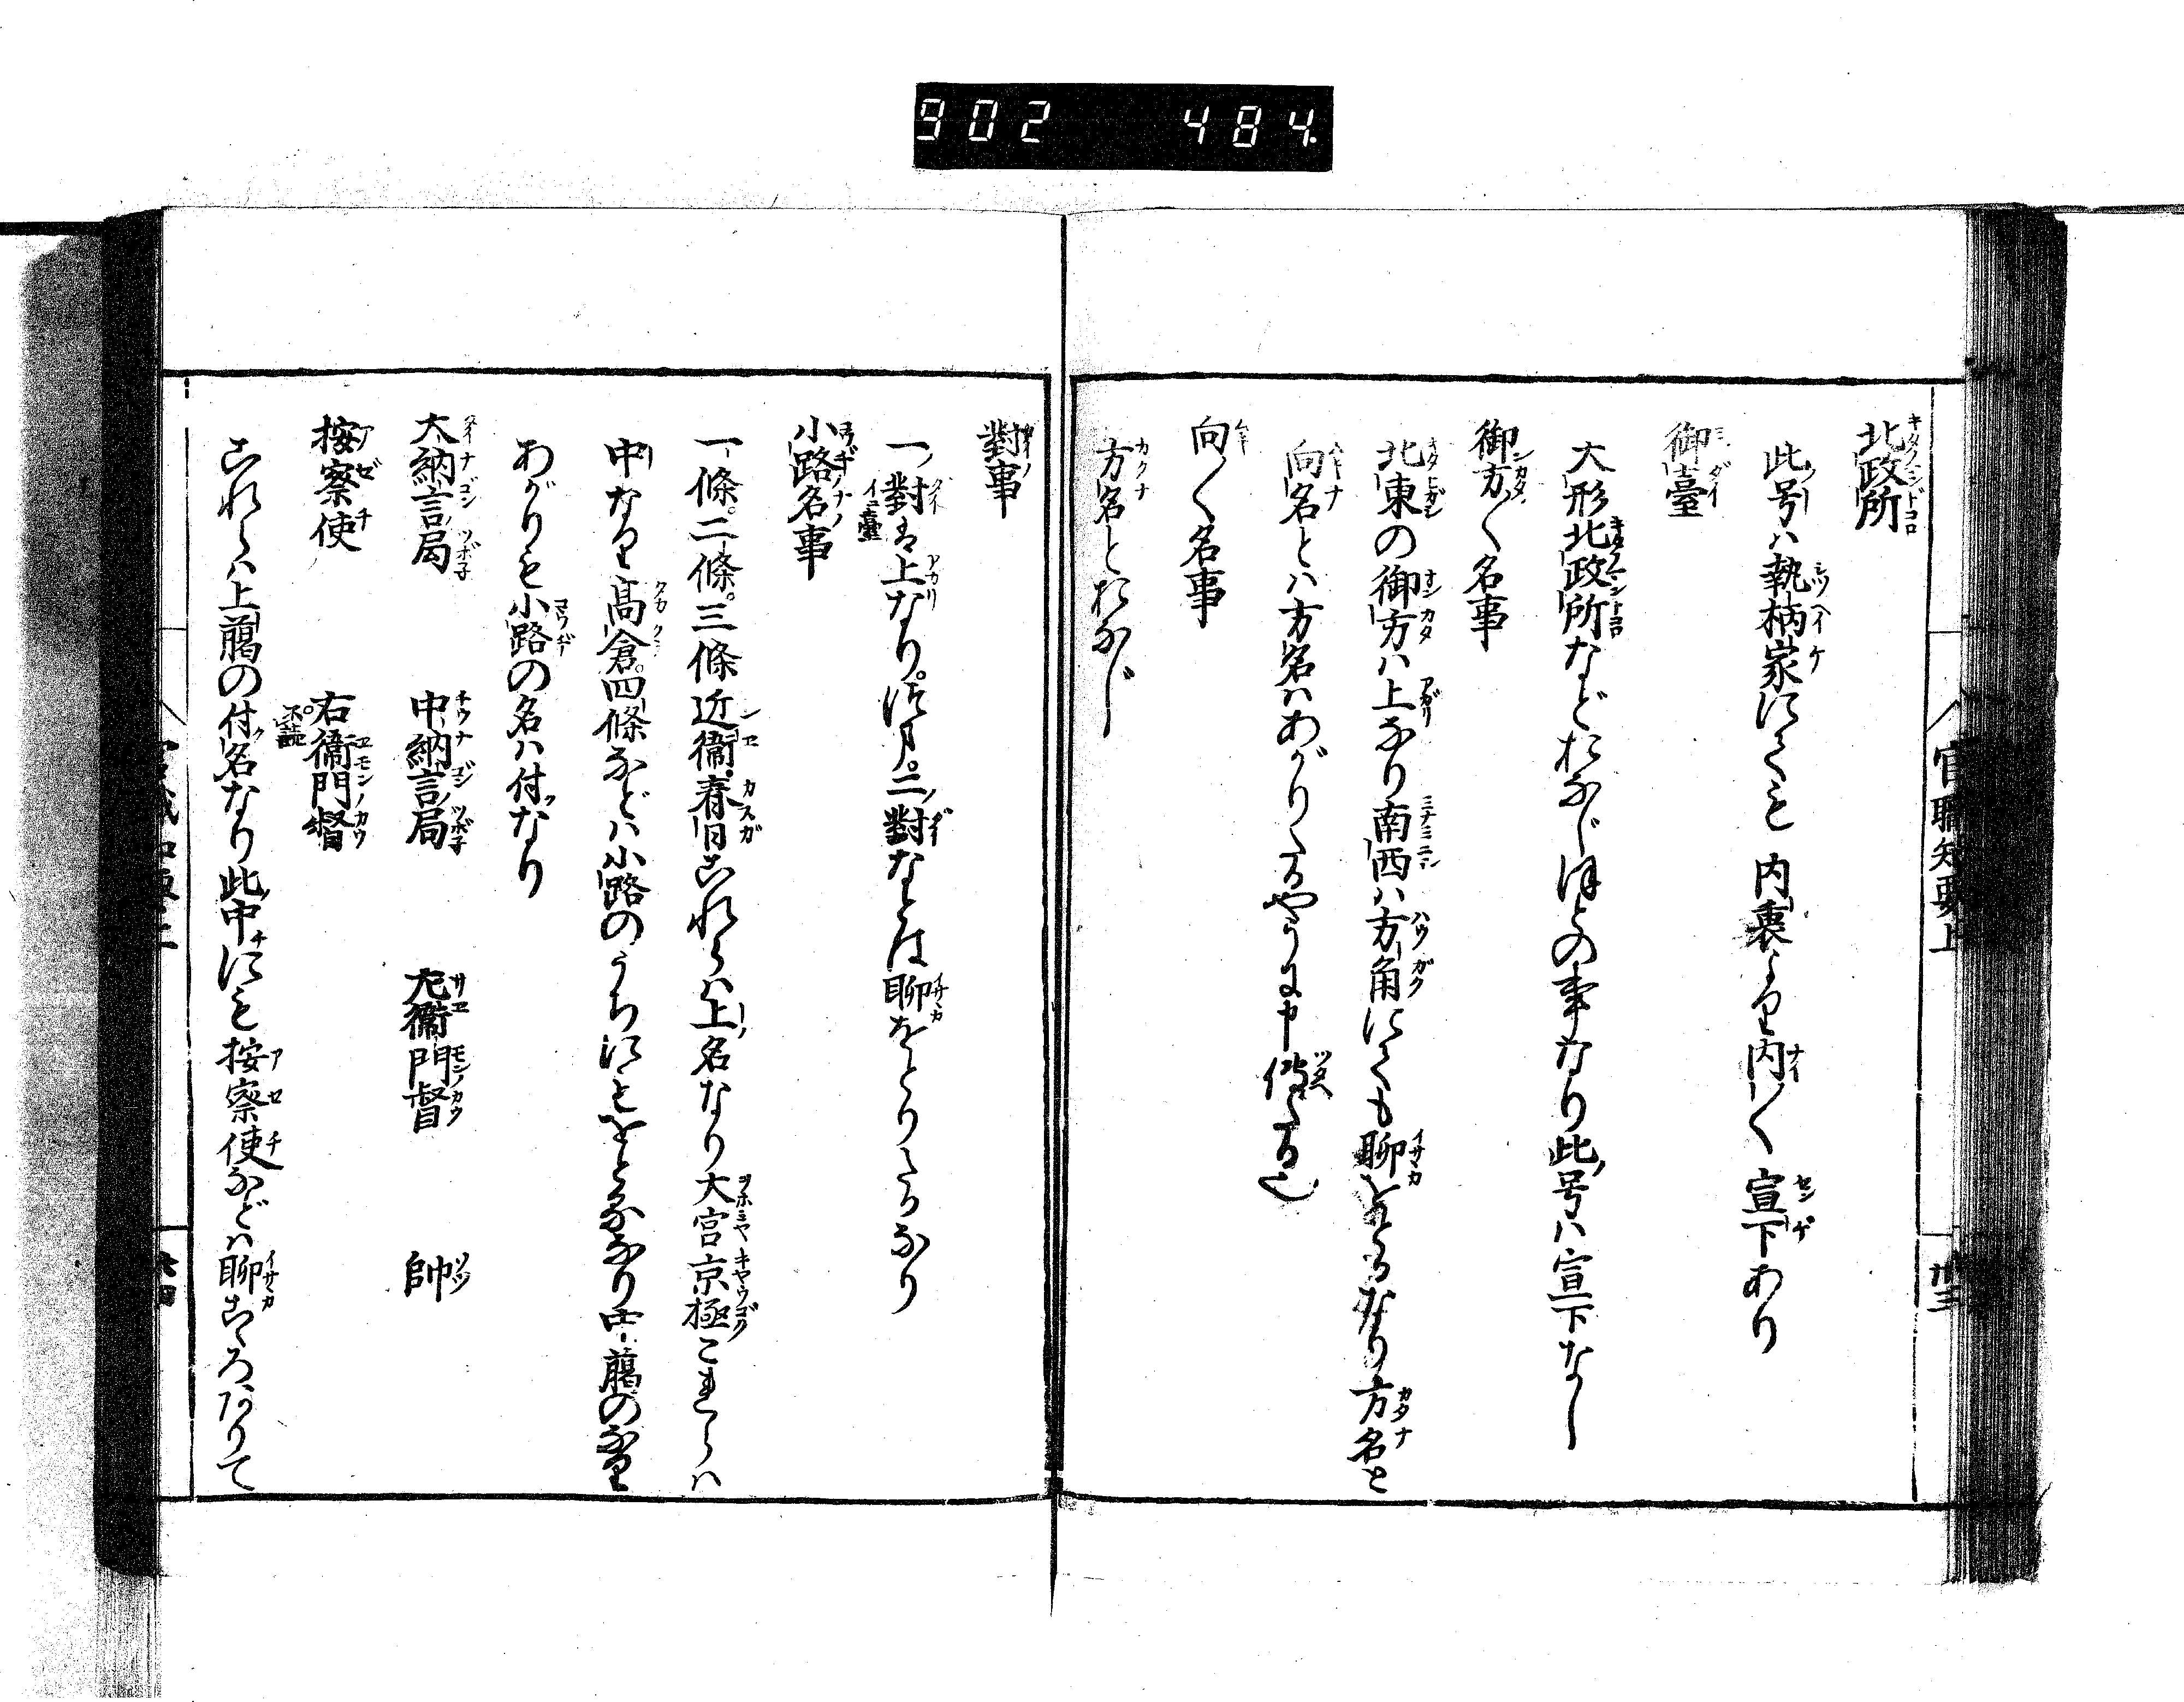 902 484
官職知要上 卅三
北政所
此号ハ執柄家にても 内裏より内〱宣下あり
御臺
大形北政所などおなじほとの事なり此号ハ宣下なし
御方〱名事
北東の御方ハ上なり南西ハ方角にても聊をとるなり方名と
向名とハ方名ハあがりたるやうに申傳たる也
向〱名事
方名とおなじ
對事
一對ハ上なり。二對などは聊をとりたるなり
小路名事
一條。二條。三條近衞。春日これらハ上名なり大宮京極これらハ
中なり高倉。四條などハ小路のうちにもをとなり中﨟の
あがりも小路の名ハ付なり
大納言局 中納言局 左衞門督 帥
按察使 右衞門督
これらハ上﨟の付名なり此中にも按察使などハ聊おとろへたりて